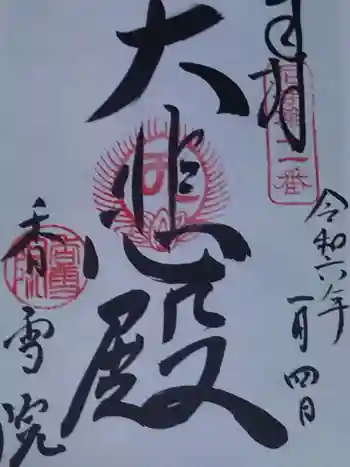 奉拝
大悲殿
令和六年
一月四日
香雪院